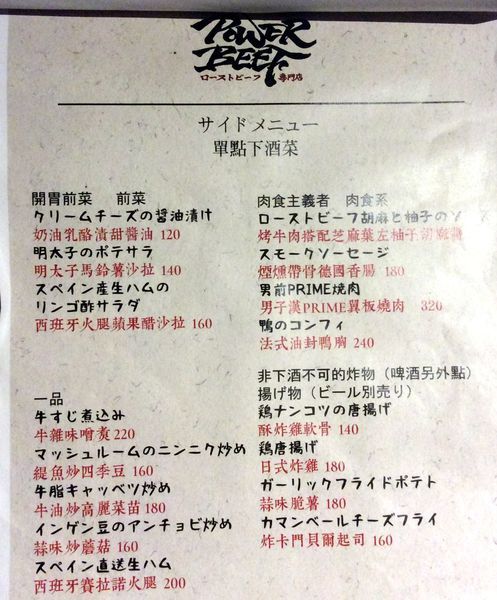 POWER
BEEF
ローストビーフ 專門店
サイドメニュー
單點下酒菜
開胃前菜 前菜
クリームチーズの醤油漬け
奶油乳酪漬甜醬油 120
明太子のポテサラ
明太子馬鈴薯沙拉 140
スペイン産生ハムの
リンゴ酢サラダ
西班牙火腿蘋果醋沙拉 160
一品
牛すじ煮込み
牛雜味噌煮 220
マッシュルームのニンニク炒め
緹魚炒四季豆 160
牛脂キャッベツ炒め
牛油炒高麗菜苗 180
インゲン豆のアンチョビ炒め
蒜味炒蘑菇 160
スペイン直送生ハム
西班牙賽拉諾火腿 200
肉食主義者 肉食系
ローストビーフ胡麻と柚子のソ
烤牛肉搭配芝麻葉左柚子胡麻醬
スモークソーセージ
煙燻帶骨德國香腸 180
男前PRIME焼肉
男子漢PRIME翼板燒肉 320
鴨のコンフィ
法式油封鴨胸 240
非下酒不可的炸物（啤酒另外點）
揚げ物（ビール別売り）
鶏ナンコツの唐揚げ
酥炸雞軟骨 140
鶏唐揚げ
日式炸雞 180
ガーリックフライドポテト
蒜味脆薯 180
カマンベールチーズフライ
炸卡門貝爾起司 160